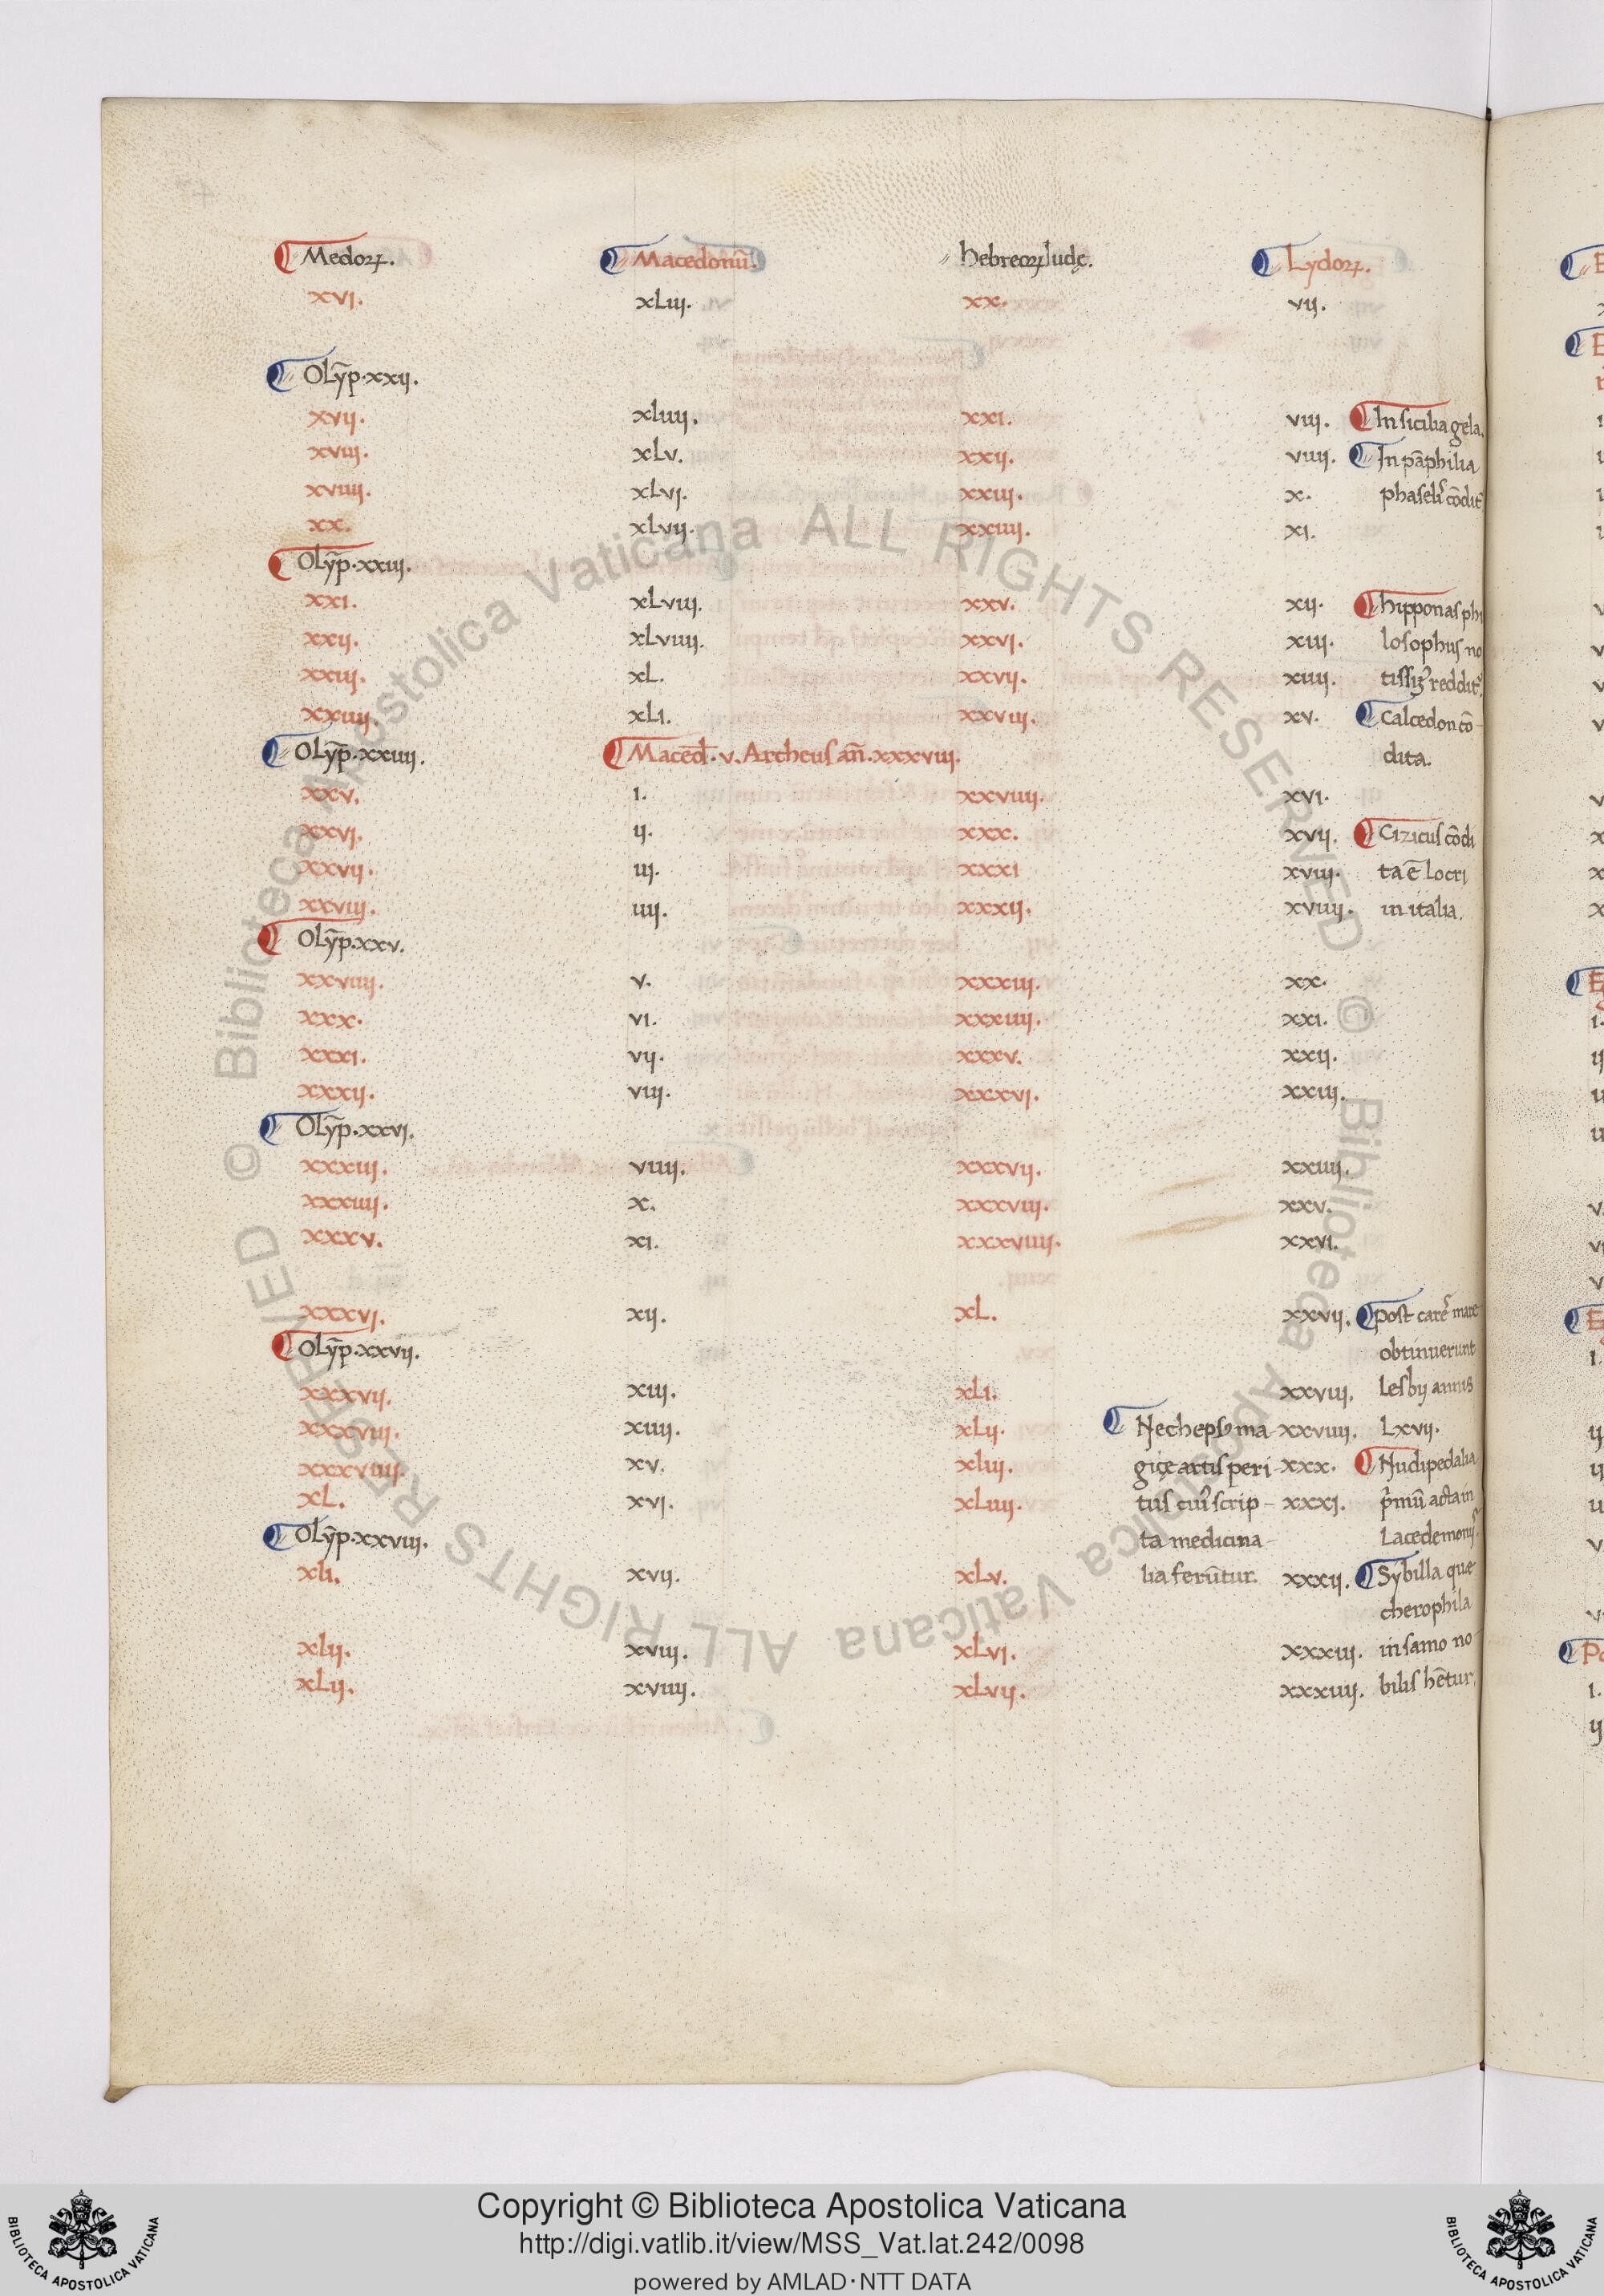 Medoꝝ. Macedonū. hebreoꝝ Iudę. Lydoꝝ.
xvi. xLiii. xx. vii.
Olȳp. xxii.
xvii. xliiii. xxi. viii. In sicilia gela.
xviii. xLv. xxii. viiii. In pāphilia
xviiii. xLvi. xxiii. x. phaselis cōdit᷑
xx. xLvii. xxiiii. xi.
Olȳp. xxiii.
xxi. xLviii. xxv. xii. hipponas phi
xxii. xLviiii. xxvi. xiii. losophus no
xxiii. xL. xxvii. xiiii. reddit᷑.
xxiiii. xLi. xxviii. xv. Calcedon cō-
Olȳp. xxiiii. Macēd. v. Archeus añ. xxxviii. dita.
xxv. i. xxviiii. xvi.
xxvi. ii. xxx. xvii. Cizicus cōdi
xxvii. iii. xxxi xviii. ta ē locri
xxviii. iiii. xxxii. xviiii. in italia.
Olȳp. xxv.
xxviiii. v. xxxiii. xx.
xxx. vi. xxxiiii. xxi.
xxxi. vii. xxxv. xxii.
xxxii. viii. xxxvi. xxiii.
Olȳp. xxvi.
xxxiii. viiii. xxxvii. xxiiii.
xxxiiii. x. xxxviii. xxv.
xxxv. xi. xxxviiii. xxvi.
xxxvi. xii. xL. xxvii. post care᷒ mare
Olȳp. xxvii. obtinuerunt
xxxvii. xiii. xLi. xxviii. lesbii annis
xxxviii. xiiii. xLii. Necheps᷒ ma- xxviiii. Lxvii.
xxxviiii. xv. xliii. gicę artis peri- xxx. Nudipedalia
xL. xvi. xLiiii. tus cui᷒ scrip- xxxi. p̄mū acta in
Olȳp. xxviii. ta medicina- Lacedemoniis.
xli. xvii. xLv. lia ferūtur. xxxii. Sybilla que
cherophila
xlii. xviii. xLvi. xxxiii. in samo no
xLii. xviiii. xLvii. xxxiiii. bilis hētur.
© Biblioteca Apostolica Vaticana ALL RIGHTS RESERVED © Biblioteca Apostolica Vaticana ALL RIGHTS RESERVED
Copyright © Biblioteca Apostolica Vaticana
http://digi.vatlib.it/view/MSS_Vat.lat.242/0098
powered by AMLAD·NTT DATA
BIBLIOTECA APOSTOLICA VATICANA
BIBLIOTECA APOSTOLICA VATICANA